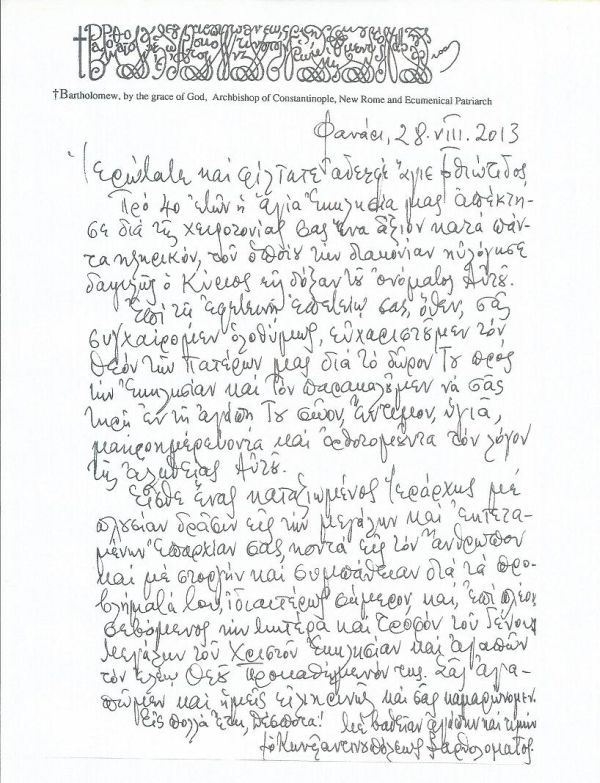 †Bartholomew, by the grace of God, Archbishop of Constantinople, New Rome and Ecumenical Patriarch
Φανάρι, 28.VIII.2013
Ἱερώτατε καὶ φίλτατε ἀδελφὲ ἅγιε Φθιώτιδος,
Πρὸ 40 ἐτῶν ἡ ἁγία Ἐκκλησία μας ἀπέκτη-
σε διὰ τῆς χειροτονίας σας ἕνα ἄξιον κατὰ πάν-
τα κληρικόν, τοῦ ὁποίου τὴν διακονίαν ηὐλόγησε
δαψιλῶς ὁ Κύριος εἰς δόξαν τοῦ ὀνόματος Αὐτοῦ.
Ἐπὶ τῇ ἐφετεινῇ ἐπετείῳ σας, ὅθεν, σᾶς
συγχαίρομεν ὁλοθύμως, εὐχαριστοῦμεν τὸν
Θεὸν τῶν Πατέρων μας διὰ τὸ δῶρον Του πρὸς
τὴν Ἐκκλησίαν καὶ Τὸν παρακαλοῦμεν νὰ σᾶς
τηρῇ ἐν τῇ ἀγάπῃ Του σῶον, ἔντιμον, ὑγιᾶ,
μακροημερεύοντα καὶ ὀρθοτομοῦντα τὸν λόγον
τῆς ἀληθείας Αὐτοῦ.
Εἶσθε ἕνας καταξιωμένος Ἱεράρχης μὲ
πλουσίαν δρᾶσιν εἰς τὴν μεγάλην καὶ ἐκτετα-
μένην Ἐπαρχίαν σας, κοντὰ εἰς τὸν ἄνθρωπον
καὶ μὲ στοργὴν καὶ συμπάθειαν διὰ τὰ προ-
βλήματά του, ἰδιαιτέρως σήμερον, καί, ἐπὶ πλέον,
σεβόμενος τὴν Μητέρα καὶ Τροφὸν τοῦ Γένους
Μεγάλην τοῦ Χριστοῦ Ἐκκλησίαν καὶ ἀγαπῶν
τὸν ἐλέῳ Θεοῦ Προκαθήμενόν της. Σᾶς ἀγα-
πῶμεν καὶ ἡμεῖς εἰλικρινῶς καὶ σᾶς καμαρώνομεν.
Εἰς πολλὰ ἔτη, Δέσποτα! Μὲ βαθεῖαν ἀγάπην καὶ τιμὴν
† ὁ Κωνσταντινουπόλεως Βαρθολομαῖος.